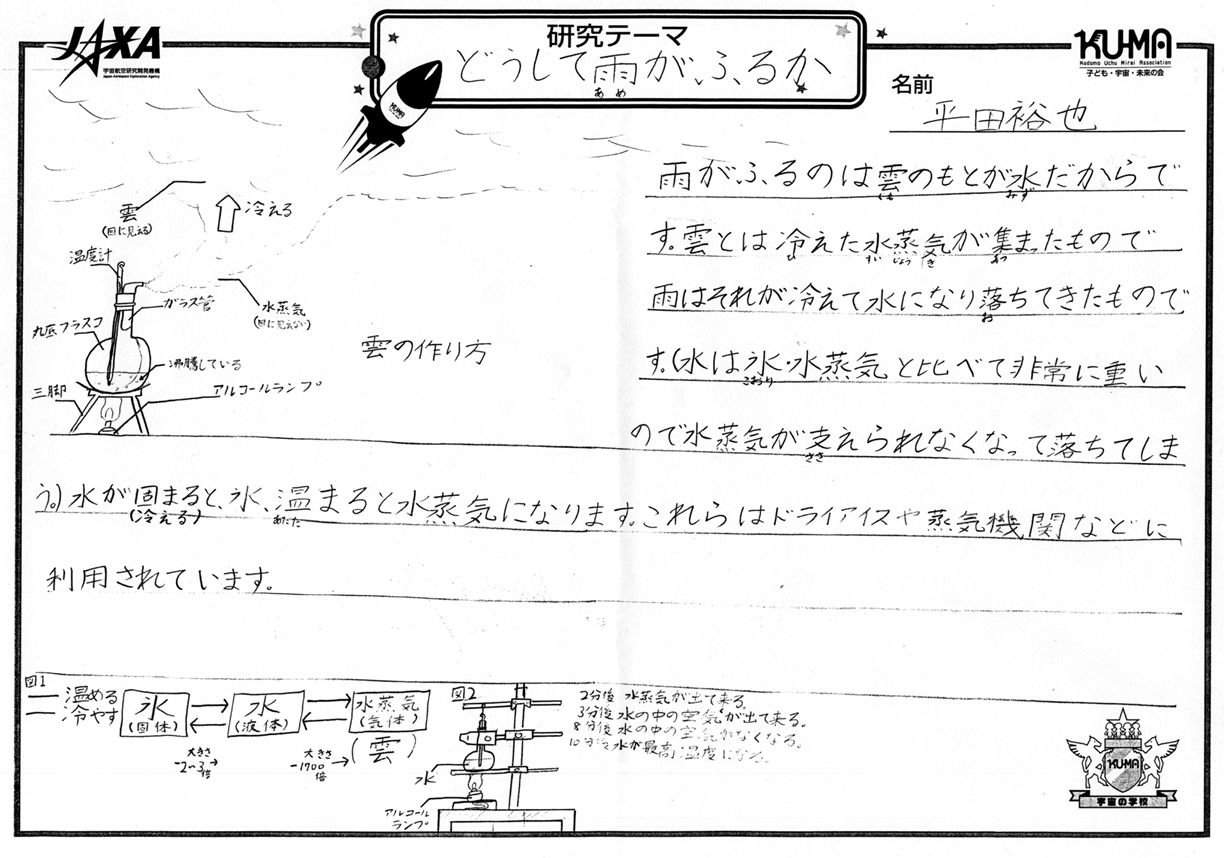 JAXA
宇宙航空研究開発機構
Japan Aerospace Exploration Agency
研究テーマ
どうして雨がふるか
あめ
KUMA
KU-MA
Kodomo Uchu Mirai Association
子ども・宇宙・未来の会
名前
平田裕也
雨がふるのは雲のもとが水だからで
くも みず
す。雲とは冷えた水蒸気が集まったもので
ひ すい じょう き あつ
雨はそれが冷えて水になり落ちてきたもので
お
す。(水は氷・水蒸気と比べて非常に重い
こおり
ので水蒸気が支えられなくなって落ちてしま
ささ
う。)水が固まると、氷、温まると水蒸気になります。これらはドライアイスや蒸気機関などに
(冷える) あたた
利用されています。
雲
(目に見える)
冷える
温度計
ガラス管
水蒸気
(目に見えない)
丸底フラスコ
沸騰している
三脚
アルコールランプ
雲の作り方
図1
温める
冷やす
氷
(固体)
水
(液体)
水蒸気
(気体)
(雲)
大きさ
-2~3
倍
大きさ
-1700
倍
図2
水
アルコール
ランプ
2分後 水蒸気が出て来る。
3分後 水の中の空気が出て来る。
8分後 水の中の空気がなくなる。
10分後 水が最高温度になる。
KU-MA
宇宙の学校